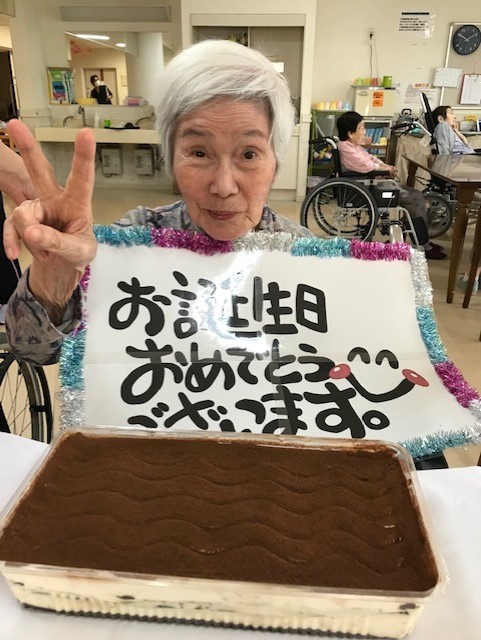 お誕生日
おめでとう
ございます。